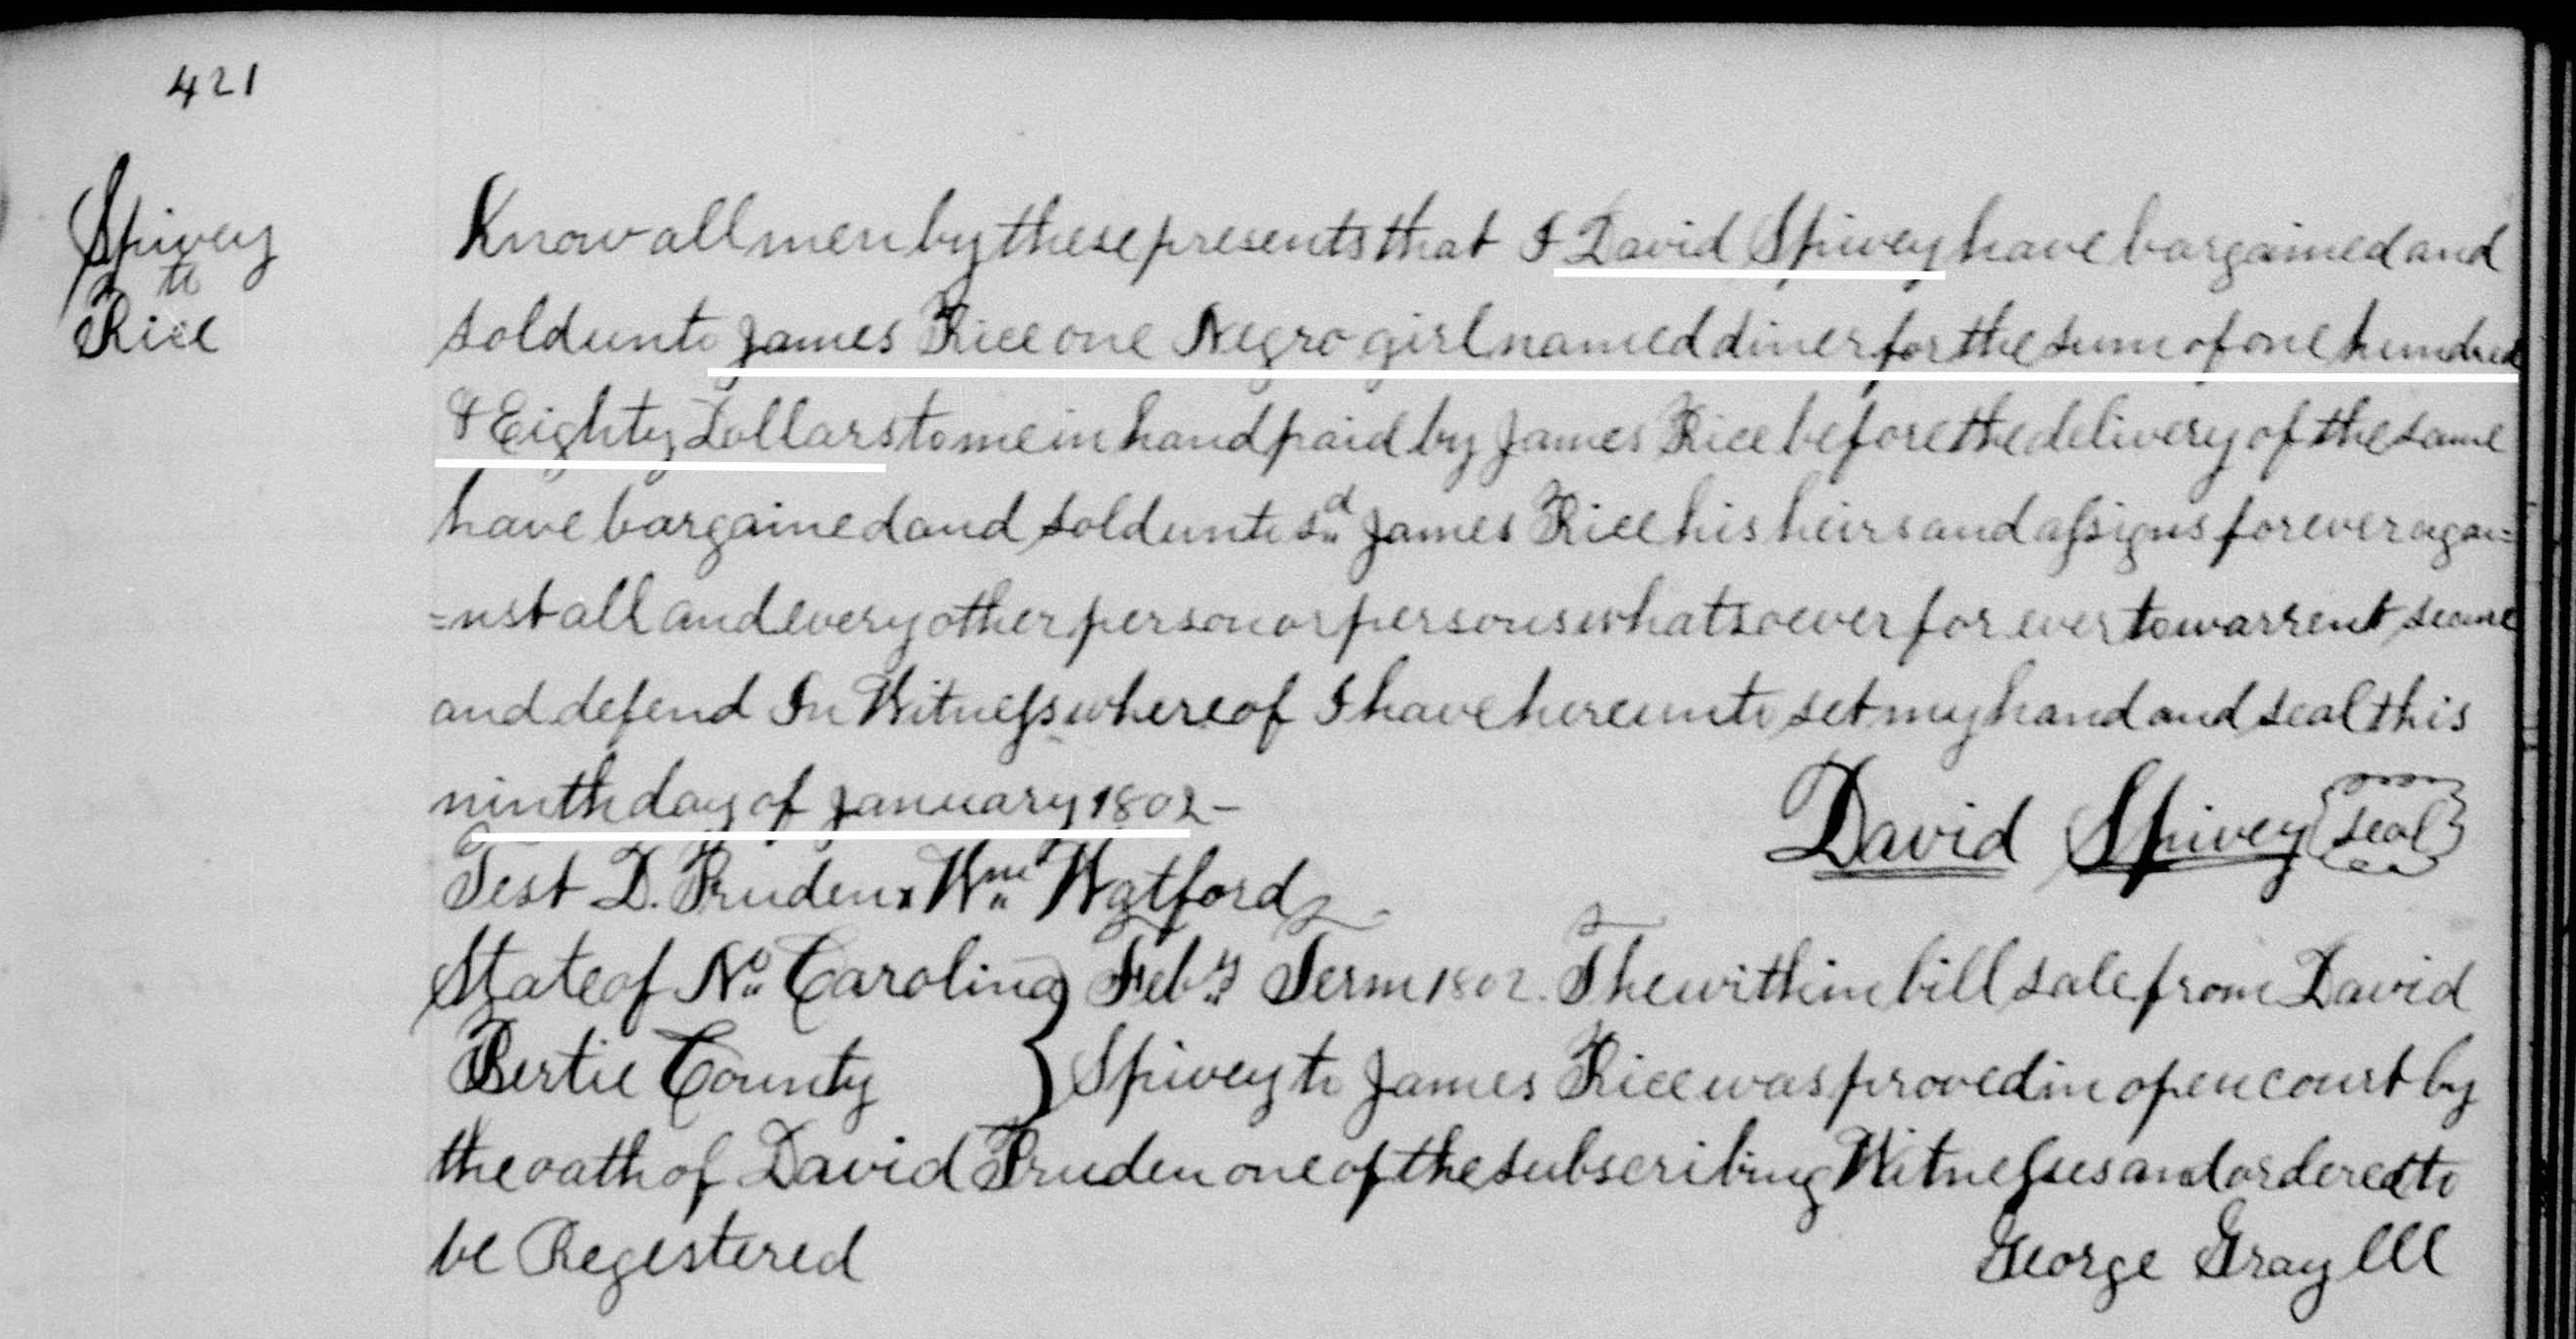 421
Spivey
to
Rice
Know all men by these presents that I David Spivey have bargained and
sold unto James Rice one Negro girl named diner for the sum of one hundred
& Eighty Dollars to me in hand paid by James Rice before the delivery of the same
have bargained and sold unto sd James Rice his heirs and assigns for ever agai=
=nst all and every other person or persons whatsoever for ever to warrent secure
and defend In Witness whereof I have hereunto set my hand and seal this
ninth day of January 1802 -
David Spivey seal
Test D. Pruden x Wm Watford
State of No Carolina } Feby Term 1802. The within bill sale from David
Bertie County } Spivey to James Rice was proved in open court by
the oath of David Pruden one of the subscribing Witnesses and ordered to
be Regestered
George Gray CCC